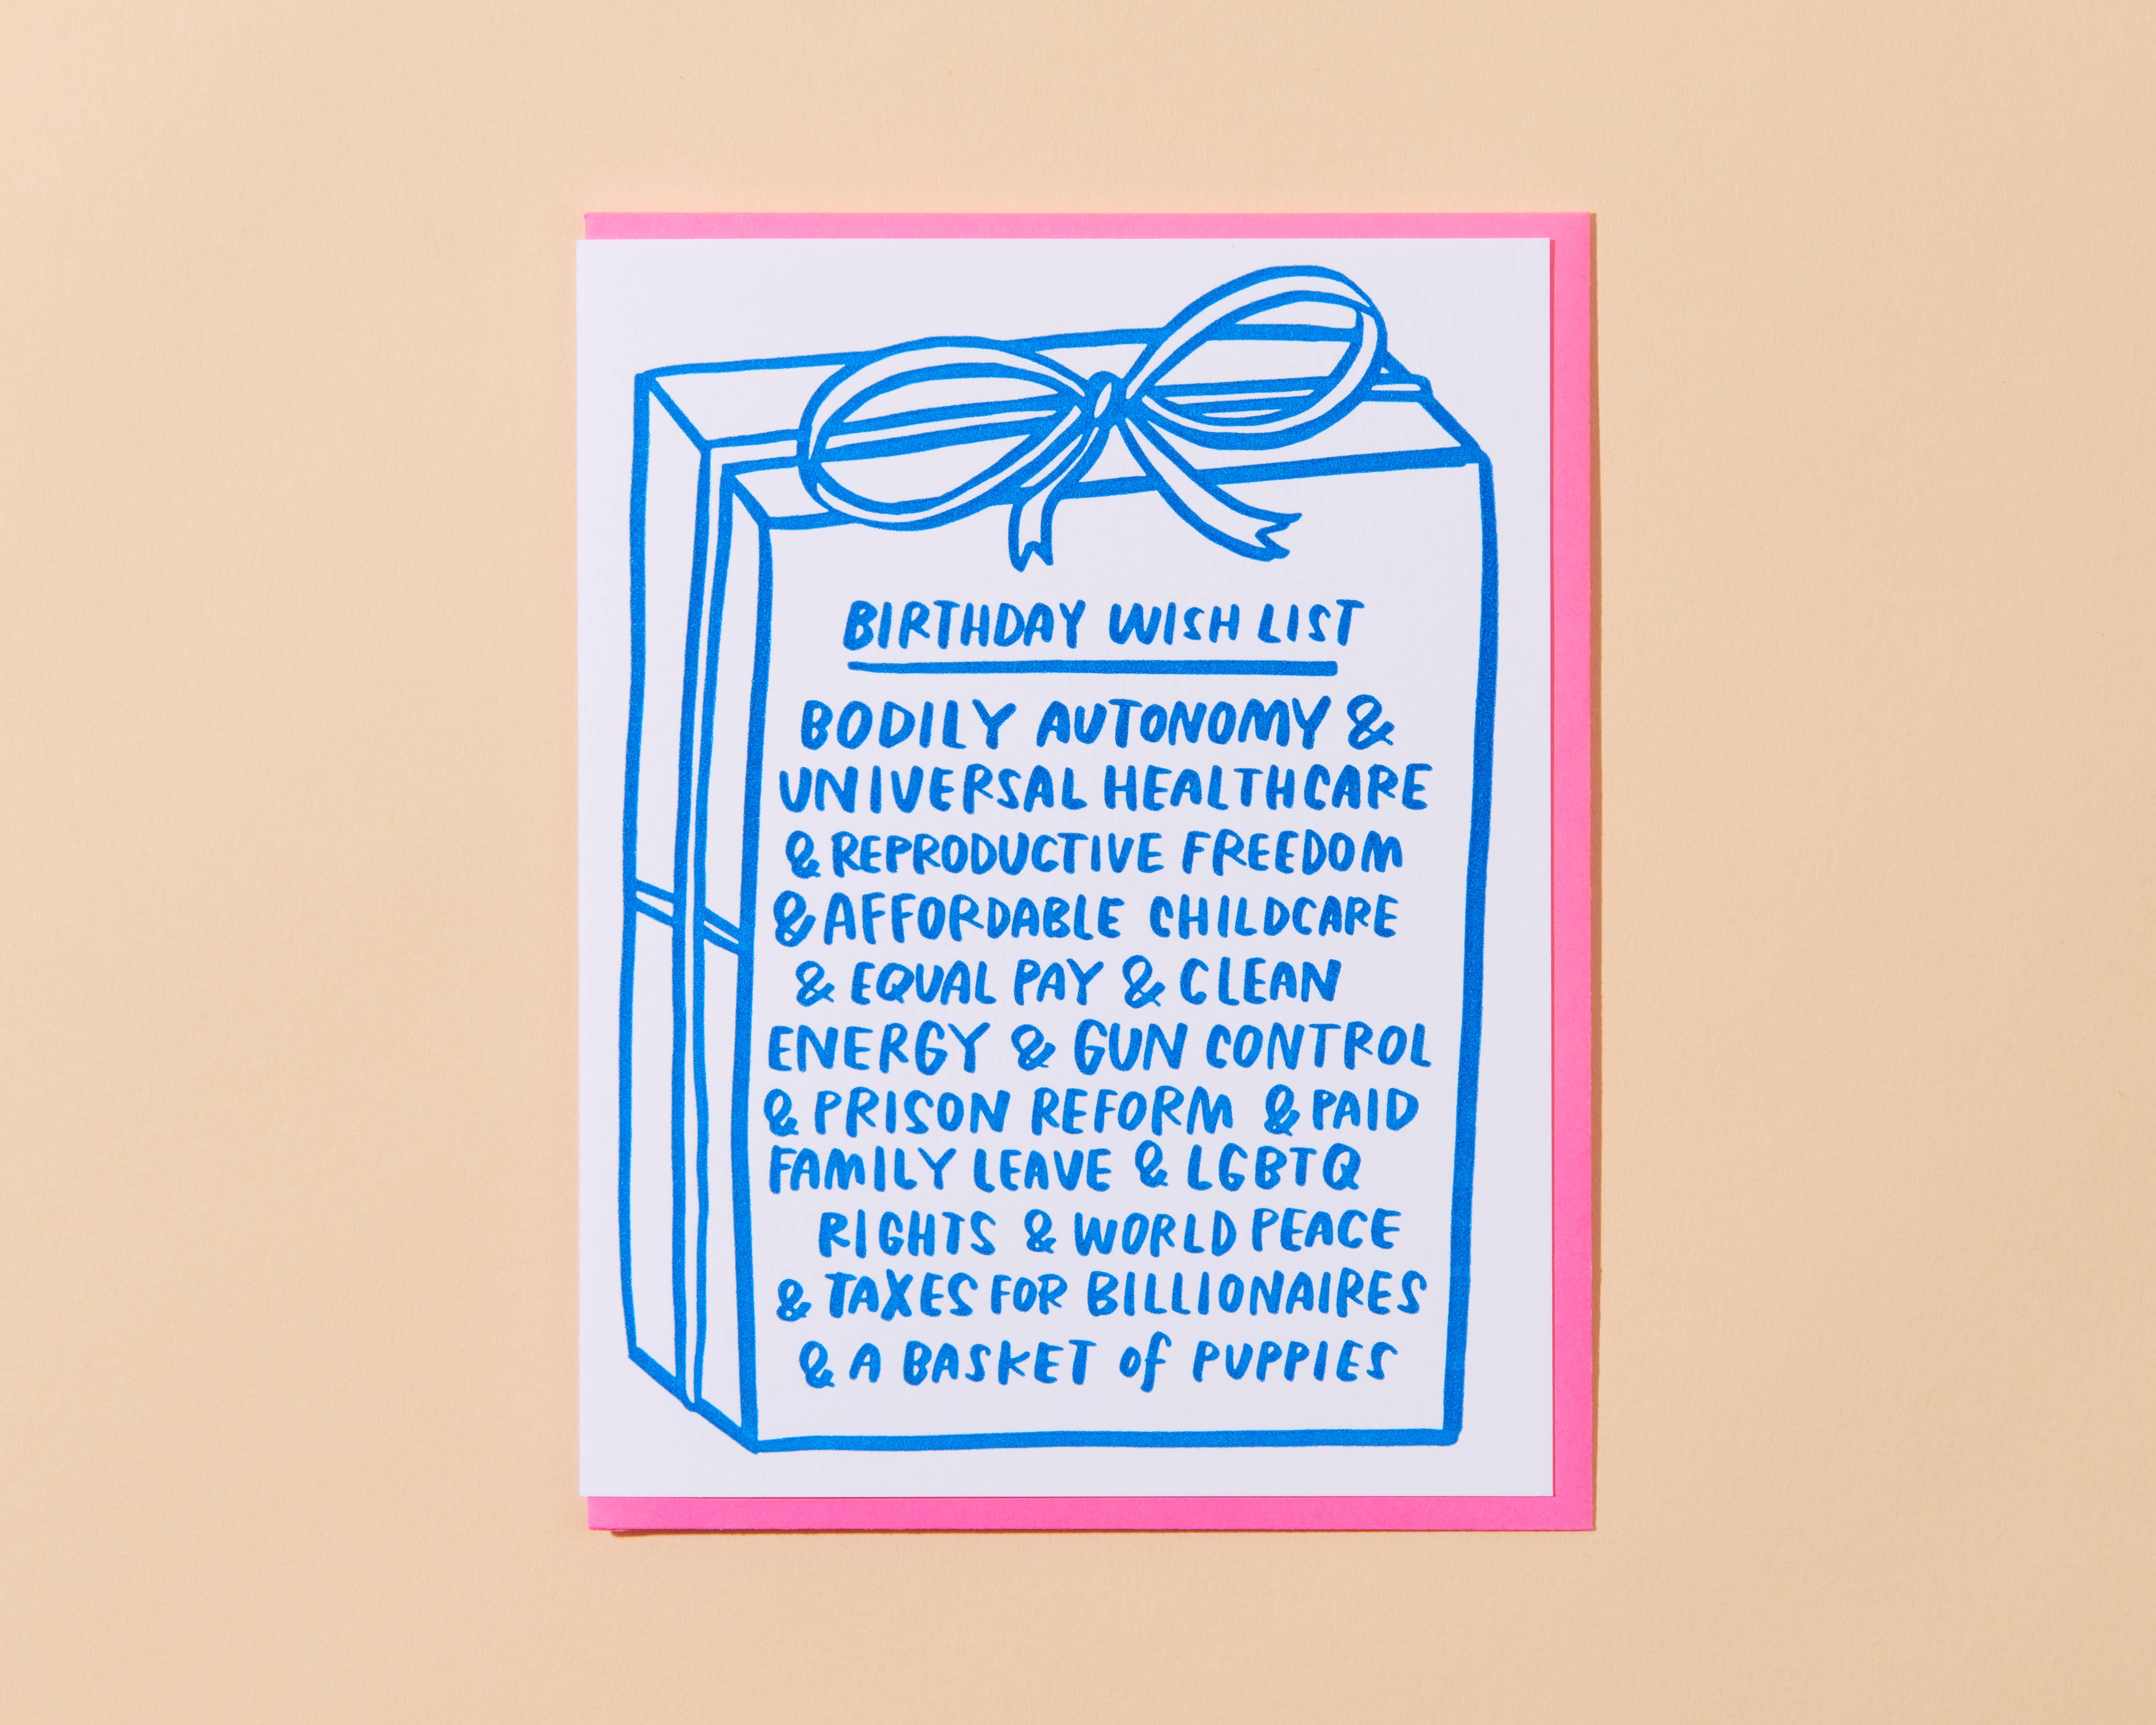 BIRTHDAY WISH LIST
BODILY AUTONOMY &
UNIVERSAL HEALTHCARE
& REPRODUCTIVE FREEDOM
& AFFORDABLE CHILDCARE
& EQUAL PAY & CLEAN
ENERGY & GUN CONTROL
& PRISON REFORM & PAID
FAMILY LEAVE & LGBTQ
RIGHTS & WORLD PEACE
& TAXES FOR BILLIONAIRES
& A BASKET of PUPPIES